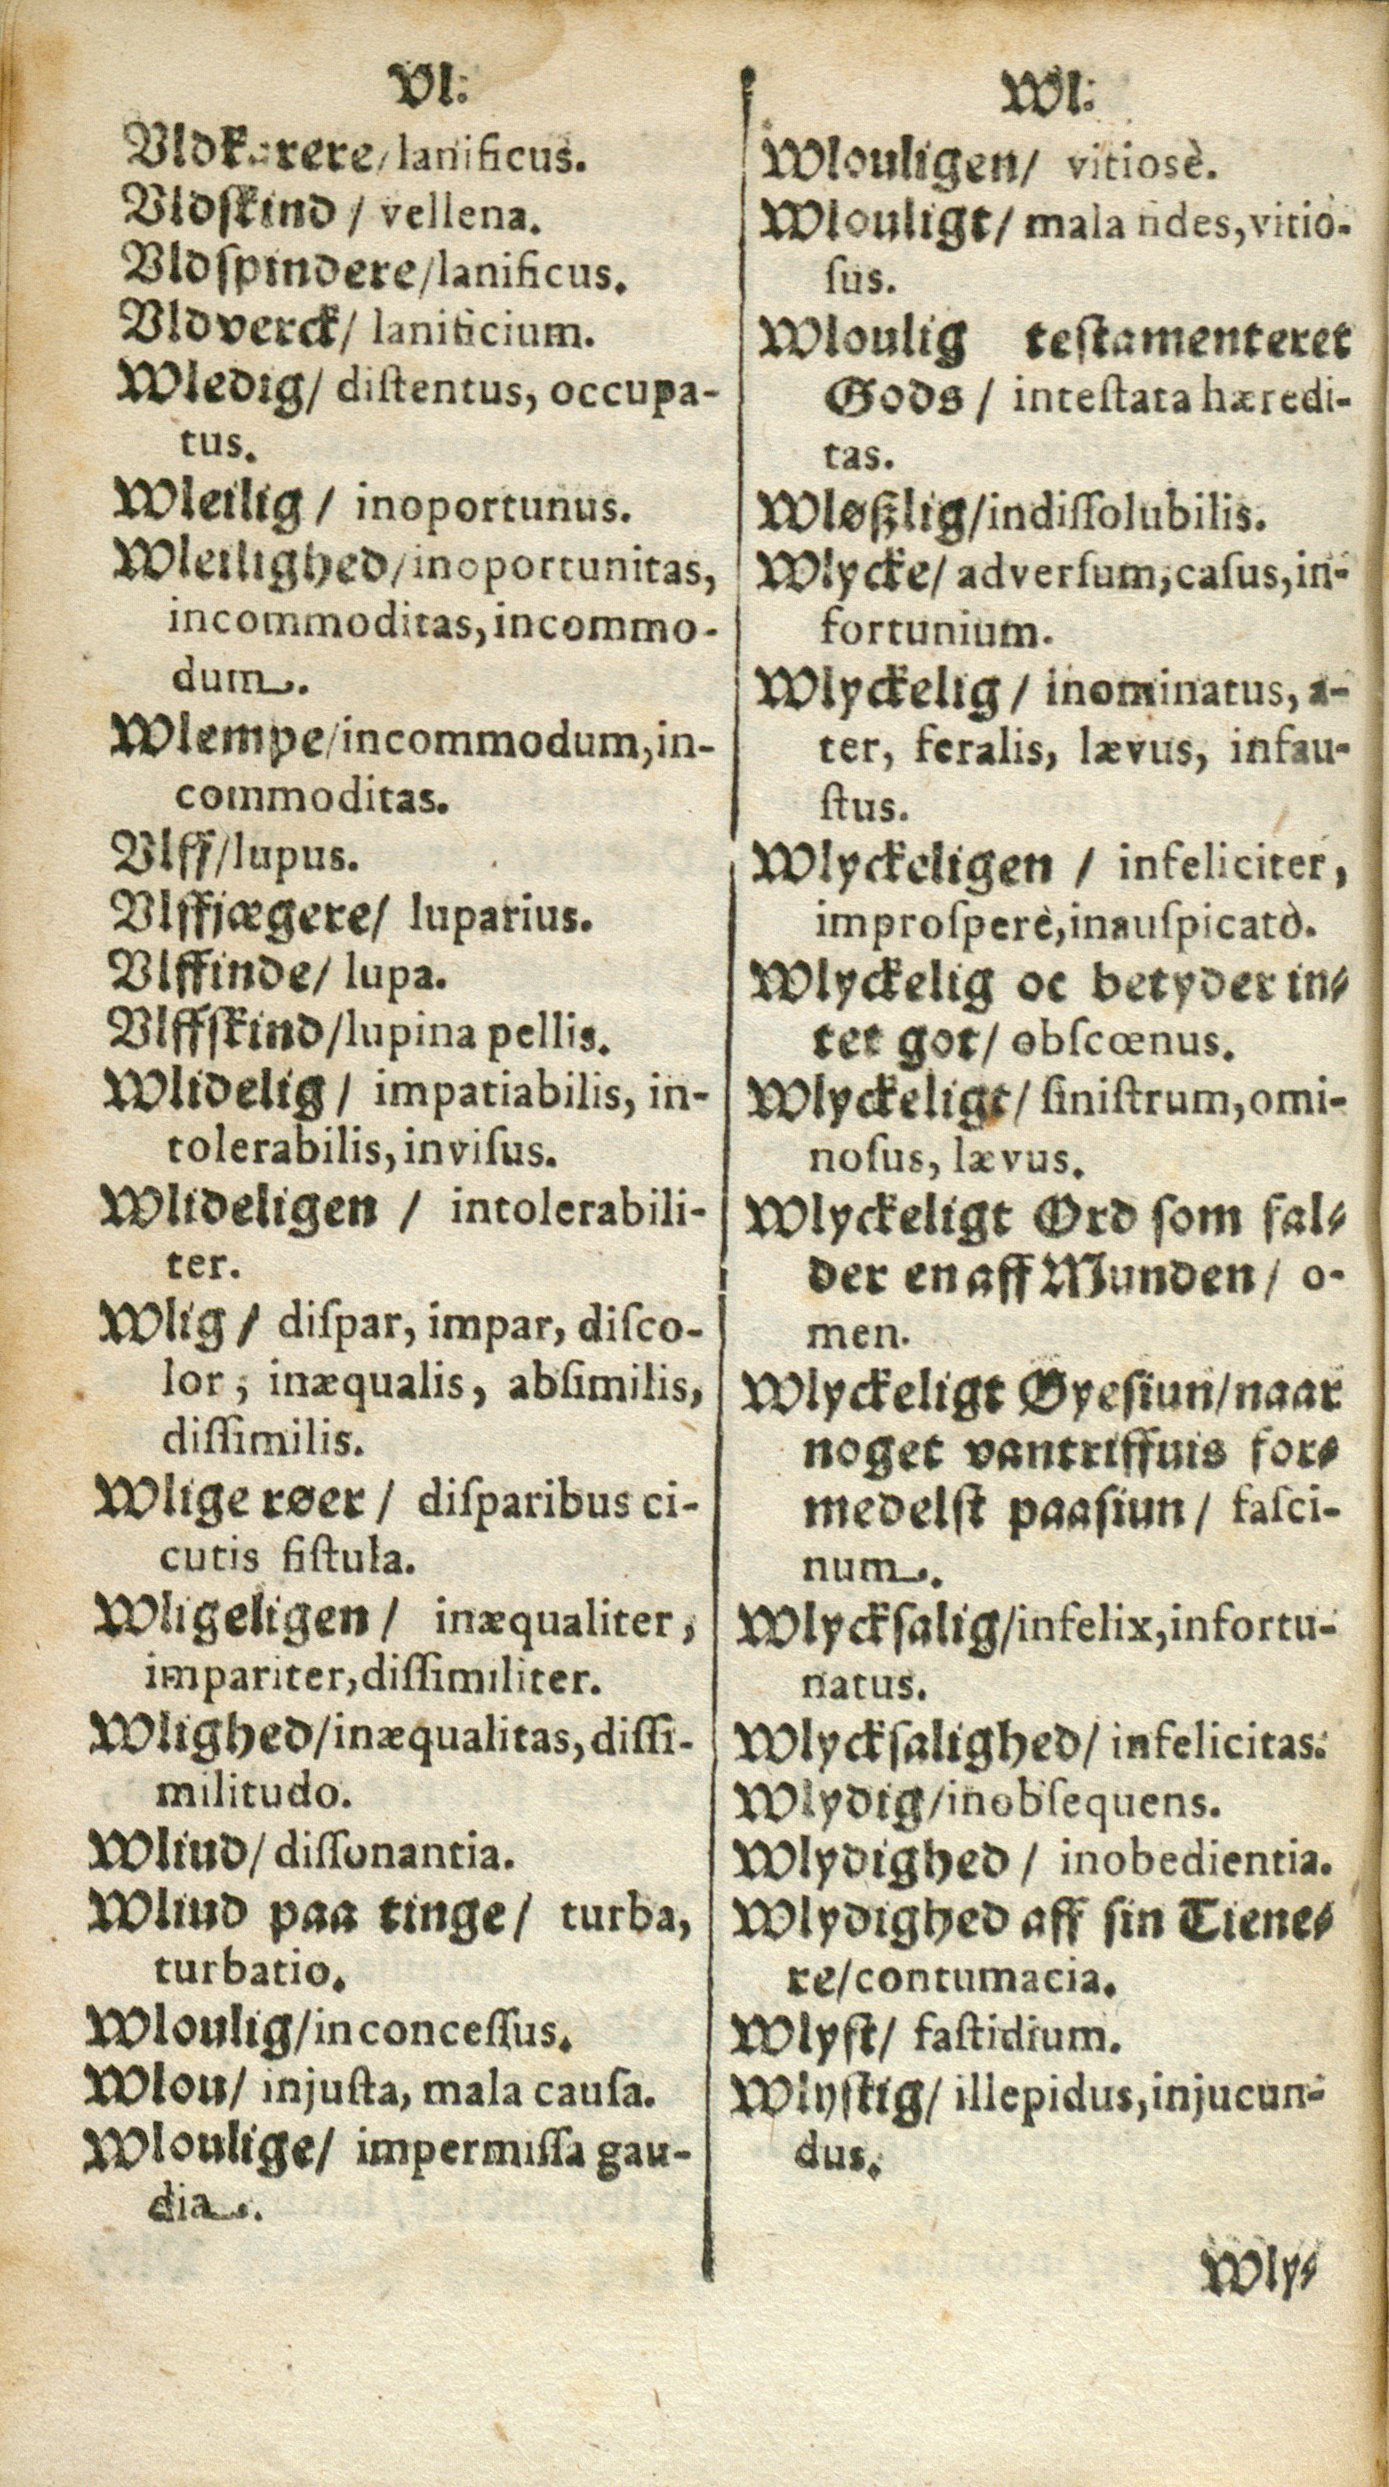 Vl:
Vldkarere/ lanificus.
Vldſkind / vellena.
Vldſpindere/lanificus.
Vldverck/ lanificium.
Wledig/ diſtentus, occupa-
tus.
Wleilig / inoportunus.
Wleilighed/inoportunitas,
incommoditas, incommo-
dum.
Wlempe/incommodum, in-
commoditas.
Vlff/lupus.
Vlffjægere/ luparius.
Vlffinde/ lupa.
Vlffſkind/lupina pellis.
Wlidelig / impatiabilis, in-
tolerabilis, inviſus.
Wlideligen / intolerabili-
ter.
Wlig / diſpar, impar, diſco-
lor, inæqualis, abſimilis,
diſſimilis.
Wlige røer / diſparibus ci-
cutis fiſtula.
Wligeligen / inæqualiter,
impariter, diſſimiliter.
Wlighed/inæqualitas, diſſi-
militudo.
Wliud/ diſſonantia.
Wliud paa tinge/ turba,
turbatio.
Wloulig/inconceſſus.
Wlou/ injuſta, mala cauſa.
Wloulige/ impermiſſa gau-
dia.
Wl:
Wlouligen/ vitiosè.
Wlouligt/ mala fides, vitio-
ſus.
Wloulig teſtamenteret
Gods / inteſtata hæredi-
tas.
Wløßlig/indiſſolubilis.
Wlycke/ adverſum, caſus, in-
fortunium.
Wlyckelig / inominatus, a-
ter, feralis, lævus, infau-
ſtus.
Wlyckeligen / infeliciter,
improſperè, inauſpicatò.
Wlyckelig oc betyder in-
tet got/ obſcœnus.
Wlyckeligt/ ſiniſtrum, omi-
noſus, lævus.
Wlyckeligt Ord ſom fal-
der en aff Munden / o-
men.
Wlyckeligt Øyeſiun/naar
noget vantriffuis for-
medelſt paaſiun / faſci-
num.
Wlyckſalig/infelix, infortu-
natus.
Wlyckſalighed/ infelicitas.
Wlydig/inobſequens.
Wlydighed / inobedientia.
Wlydighed aff ſin Tiene-
re/contumacia.
Wlyſt/ faſtidium.
Wlyſtig/ illepidus, injucun-
dus.
Wly-